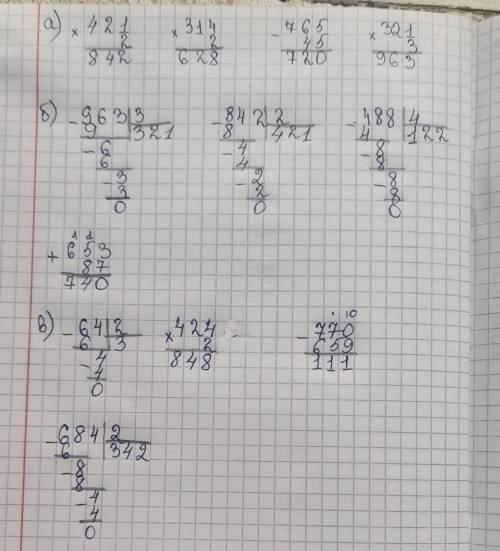 а) × 421 × 314 - 765 × 321
2 2 45 3
842 628 720 963
б) - 963 3 - 842 2 - 488 4
9 321 8 421 4 122
- 6 - 4 - 8
6 4 8
- 3 - 2 - 8
3 2 8
0 0 0
1 1
+ 653
87
740
в) - 64 2 × 424 - 770
6 3 2 659
- 4 848 111
4
0
- 684 2
6 342
- 8
8
- 4
4
0